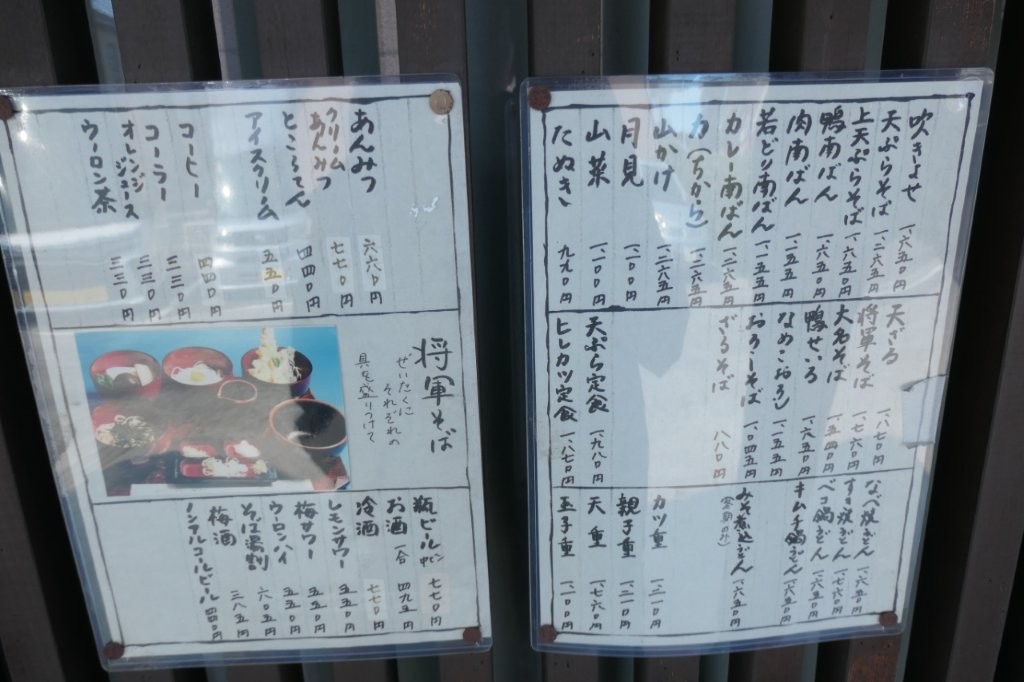 吹きよせ 一、六五〇円
天ぷらそば 一、二六五円
上天ぷらそば 一、六五〇円
鴨南ばん 一、六五〇円
肉南ばん 一、一五五円
若どり南ばん 一、一五五円
カレー南ばん 一、二六五円
力(ちから) 一、二六五円
山かけ 一、二六五円
月見 一、一〇〇円
山菜 一、一〇〇円
たぬき 九九〇円
天ざる 一、八七〇円
将軍そば 一、七六〇円
大名そば 一、五四〇円
鴨せいろ 一、六五〇円
なめこおろし 一、一五五円
おろしそば 一、〇四五円
ざるそば 八八〇円
天ぷら定食 一、九八〇円
ヒレカツ定食 一、八七〇円
なべ焼うどん 一、六五〇円
すき焼うどん 一、七六〇円
ベコ鍋うどん 一、六五〇円
キムチ鍋うどん 一、六五〇円
みそ煮込うどん 一、六五〇円
カツ重
親子重
天重 一、七六〇円
玉子重 一、一〇〇円
あんみつ 六六〇円
クリームあんみつ 七七〇円
ところてん 四四〇円
アイスクリーム 五五〇円
コーヒー 四四〇円
コーラー 三三〇円
オレンジジュース 三三〇円
ウーロン茶 三三〇円
将軍そば
ぜいたくに
それぞれの
具を盛りつけて
瓶ビール 中ビン 七七〇円
お酒 一合 四九五円
冷酒 七七〇円
レモンサワー 五五〇円
梅サワー 五五〇円
ウーロンハイ 五五〇円
そば湯割 六〇五円
梅酒 三八五円
ノンアルコールビール 四四〇円